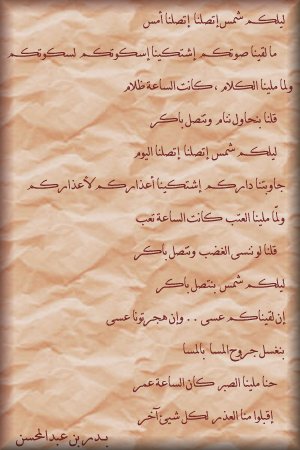 ليلكم شمس إتصلنا إتصلنا أمس
ما لقينا صوتكم إشتكينا إسكوتكم لسكوتكم
ولما ملينا الكلام ، كانت الساعة ظلام
قلنا بنحاول ننام ونتصل باكر
ليلكم شمس إتصلنا إتصلنا اليوم
جاوبتنا داركم إشتكينا أعذاركم لأعذاركم
ولمّا ملينا العتب كانت الساعة تعب
قلنا لو ننسى الغضب ونتصل باكر
ليلكم شمس بنتصل باكر
إن لقيناكم عسى .. وإن هجرتونا عسى
بنغسل جروح المسا بالمسا
حنا ملينا الصبر كان الساعة عمر
إقبلوا منا العذر لكل شيئ آخر
بدر بن عبد المحسن